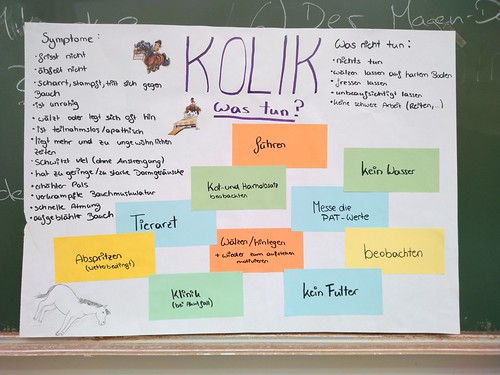 c) Der Magen-D
KOLIK
Was tun?
Symptome:
• frisst nicht
• äbfelt nicht
• scharrt, stampft, tritt sich gegen
Bauch
• ist unruhig
• wälzt oder legt sich oft hin
• ist teilnahmslos/apathisch
• liegt mehr und zu ungewöhnlichen
Zeiten
• schwitzt viel (ohne Anstrengung)
• hat zu geringe/zu starke Darmgeräusche
• erhöhter Puls
• verkrampfte Bauchmuskulatur
• schnelle Atmung
• aufgeblähter Bauch
Was nicht tun:
• nichts tun
• wälzen lassen auf harten Boden
• fressen lassen
• unbeaufsichtigt lassen
• keine schwere Arbeit (Reiten,...)
führen
kein Wasser
Kot- und Harnabsatz
beobachten
Messe die
PAT-Werte
Tierarzt
Wälzen/hinlegen
+ wieder zum aufstehen
motivieren
beobachten
Abspritzen
(wetterbedingt)
Klinik
(bei Notfall)
kein Futter